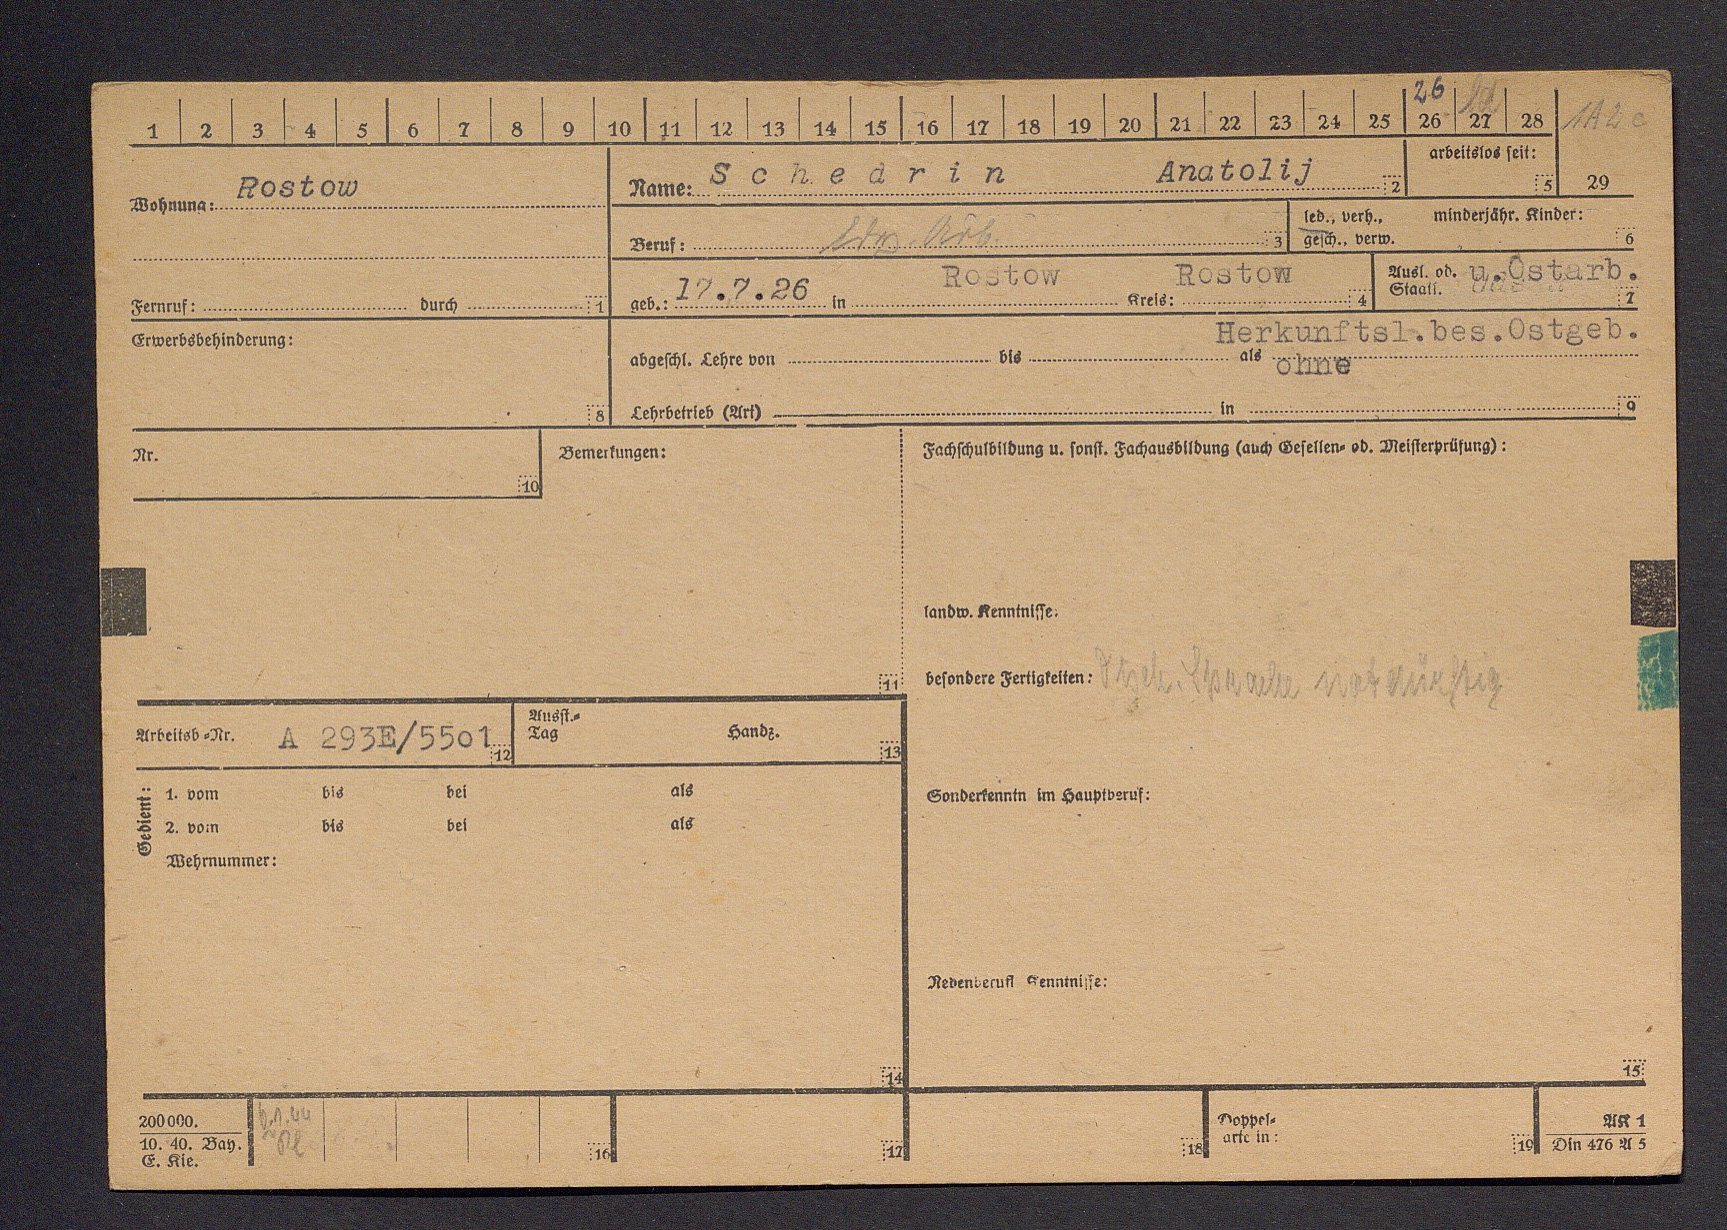 26
1 2 3 4 5 6 7 8 9 10 11 12 13 14 15 16 17 18 19 20 21 22 23 24 25 26 27 28 1A2c
Wohnung: Rostow
Name: Schedrin Anatolij 2
arbeitslos seit: 5
29
Beruf: Ldw. Arb. 3
led., verh., minderjähr. Kinder:
gesch., verw. 6
Fernruf: durch 1
geb.: 17.7.26 in Rostow Kreis: Rostow 4
Ausl. od. u. Ostarb.
Staatl. 7
Erwerbsbehinderung: 8
Herkunftsl.bes.Ostgeb.
abgeschl. Lehre von bis als ohne
Lehrbetrieb (Art) in 9
Nr. 10
Bemerkungen: 11
Fachschulbildung u. sonst. Fachausbildung (auch Gesellen- od. Meisterprüfung):
landw. Kenntnisse:
besondere Fertigkeiten: Dtsch. Sprache notdürftig
Arbeitsb-Nr. A 293E/5501 12
Ausst.-
Tag Handz. 13
Sonderkenntn im Hauptberuf:
Gedient:
1. vom bis bei als
2. vom bis bei als
Wehrnummer:
14
Nebenberufl Kenntnisse:
15
200000.
10. 40. Bay.
E. Kie.
16
17
18
Doppel-
arte in: 19
AK 1
Din 476 A 5